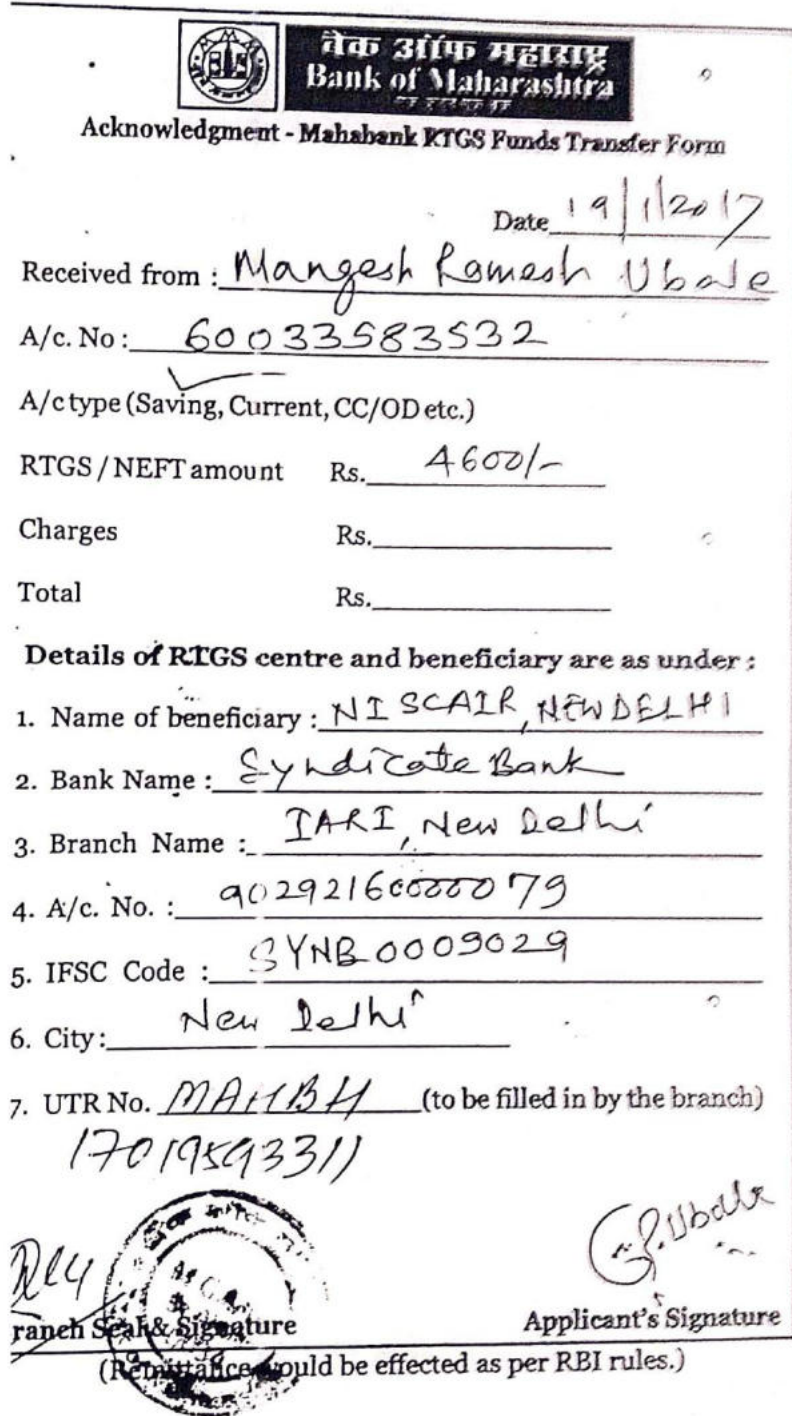 बैंक ऑफ महाराष्ट्र
Bank of Maharashtra
Acknowledgment - Mahabank RTGS Funds Transfer Form
Date 19/1/2017
Received from : Mangesh Ramesh Ubale
A/c. No : 60033583532
A/c type (Saving, Current, CC/OD etc.)
RTGS / NEFT amount Rs. 4600/-
Charges Rs.
Total Rs.
Details of RTGS centre and beneficiary are as under :
1. Name of beneficiary : NISCAIR, NEW DELHI
2. Bank Name : Syndicate Bank
3. Branch Name : IARI, New Delhi
4. A/c. No. : 90292160000079
5. IFSC Code : SYNB0009029
6. City : New Delhi
7. UTR No. MAHBH (to be filled in by the branch)
17019593311
ranch Seal & Signature Applicant's Signature
(Remittance would be effected as per RBI rules.)